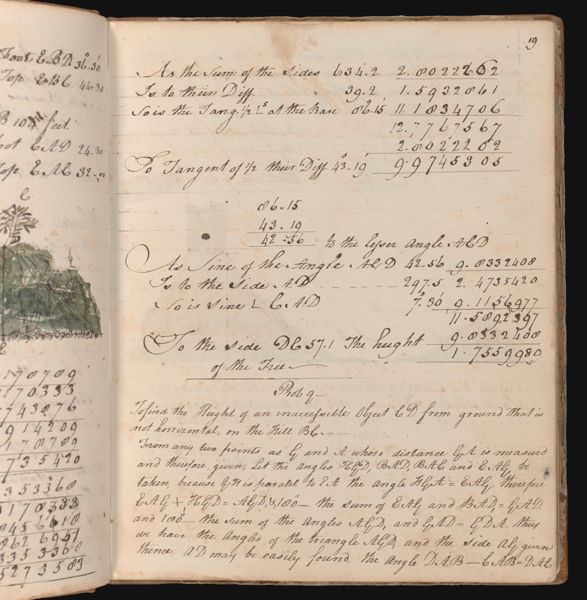 Foot EBD 36.30
Top EBC 44.30
feet
EAD 24.30
Top EAC 32.
C
178709
170333
743876
914209
178709
735420
353368
170333
8456618
862 6951
335 3368
5273583
19
As the Sum of the Sides 634.2 2.8022262
Is to their Diff. 39.2 1.5932841
So is the Tang. 1/2 Ls at the Base 86.15 11.1834706
12.7767567
2.8022262
To Tangent of 1/2 their Diff 43.19 9.9745305
86.15
43.19
42.56 to the lesser Angle ACD
As Sine of the Angle ACD 42.56 9.8332408
Is to the Side AD 297.5 2.4735420
So is Sine L CAD 7.30 9.1156977
11.5892397
9.8332408
To the side DC 57.1 The height 1.7559980
of the Tree
Prob 9
To find the Height of an inaccessible Object CD from ground that is
not horizontal, on the Hill BC.
From any two points as G and A whose distance GA is measured
and therefore given, Let the Angles HGD, BAD, BAC and EAG, be
taken, because GH is paralel to EA the Angle HGA = EAG, therefore
EAG + HGD = AGD, & 180° — the sum of EAG and BAD = GAD.
and 180° — the sum of the Angles AGD, and GAD = GDA. thus
we have the Angles of the triangle AGD, and the side AG given
thence AD may be easily found. the Angle DAB — CAB = DAC